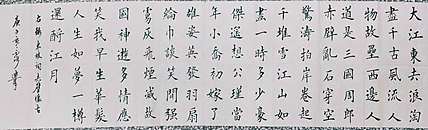 大江東去浪淘
盡千古風流人
物故壘西邊人
道是三國周郎
赤壁亂石穿空
驚濤拍岸卷起
千堆雪江山如
畫一時多少豪
傑遙想公瑾當
年小喬初嫁了
雄姿英發羽扇
綸巾談笑間强
虜灰飛煙滅故
國神遊多情應
笑我早生華髮
人生如夢一樽
還酹江月
東坡詞赤壁懷古
庚子